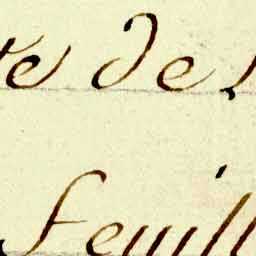 te de
feuill